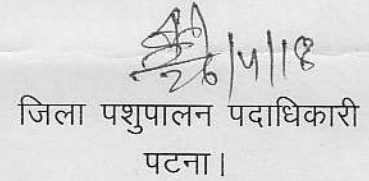 26/4/18
जिला पशुपालन पदाधिकारी
पटना।